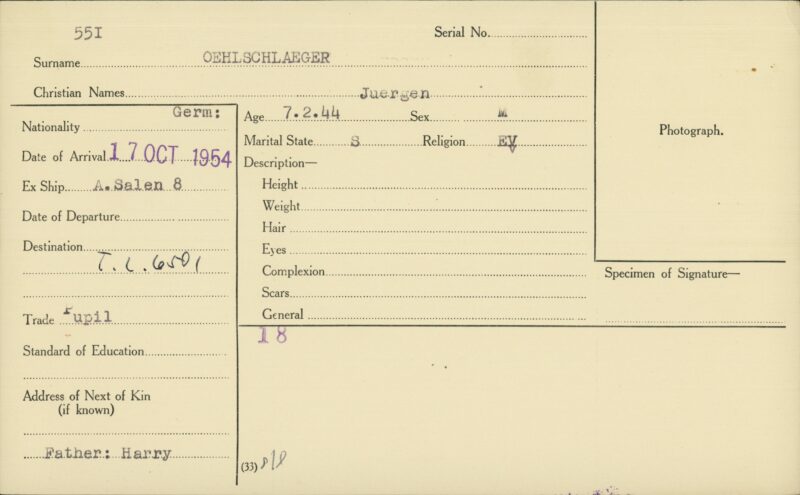 551
Serial No.
Surname OEHLSCHLAEGER
Christian Names Juergen
Nationality Germ:
Date of Arrival 17 OCT 1954
Ex Ship A. Salen 8
Date of Departure
Destination
T.C. 6501
Trade Pupil
Standard of Education
Address of Next of Kin
(if known)
Father: Harry
Age 7.2.44 Sex M
Marital State S Religion EV
Description—
Height
Weight
Hair
Eyes
Complexion
Scars
General
18
(33)
Photograph.
Specimen of Signature—